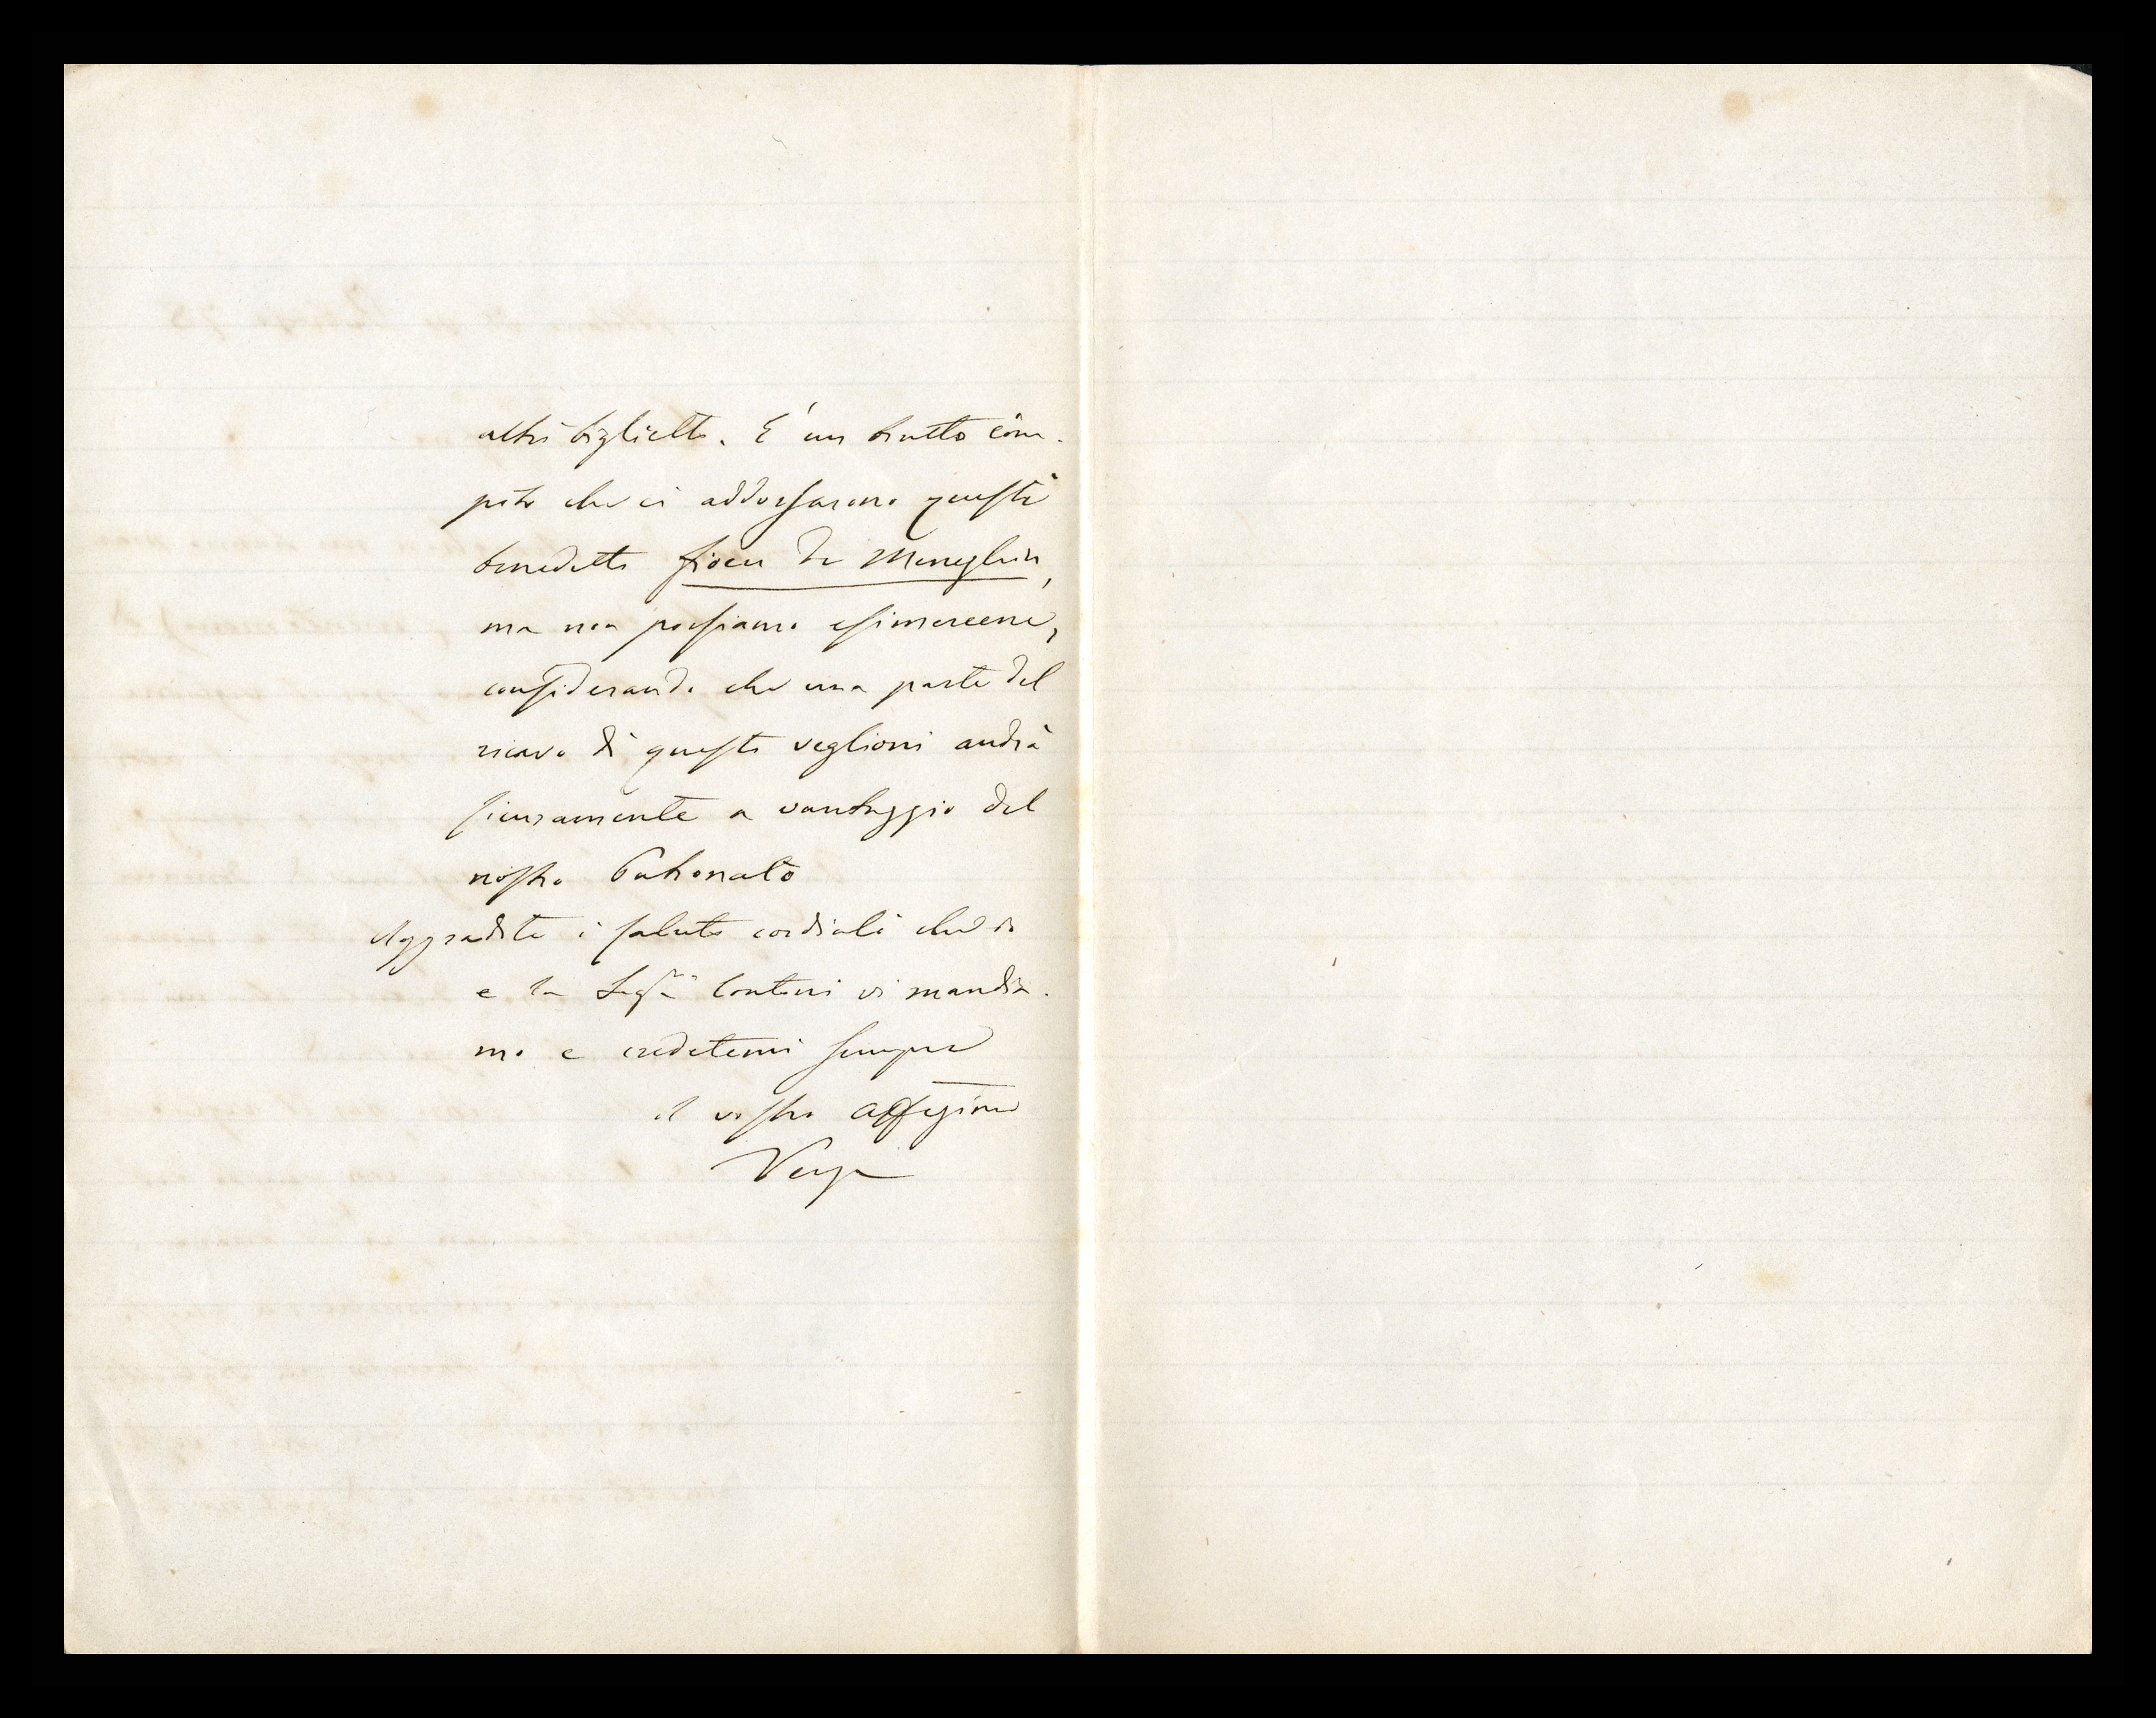 altri biglietti. È un brutto com-
pito che ci addossarono questi
benedetti fioeu de Meneghin,
ma non possiamo esimercene,
considerando che una parte del
ricavo di questi veglioni andrà
sicuramente a vantaggio del
nostro Patronato
Aggradite i saluti cordiali che io
e la Sigra Contini vi mandia-
mo e credetemi sempre
il vostro affezimo
Verga